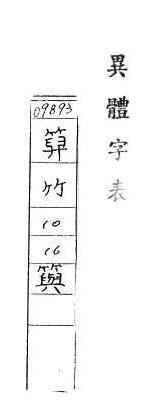 異體字表
09893
竹
10
16
籅